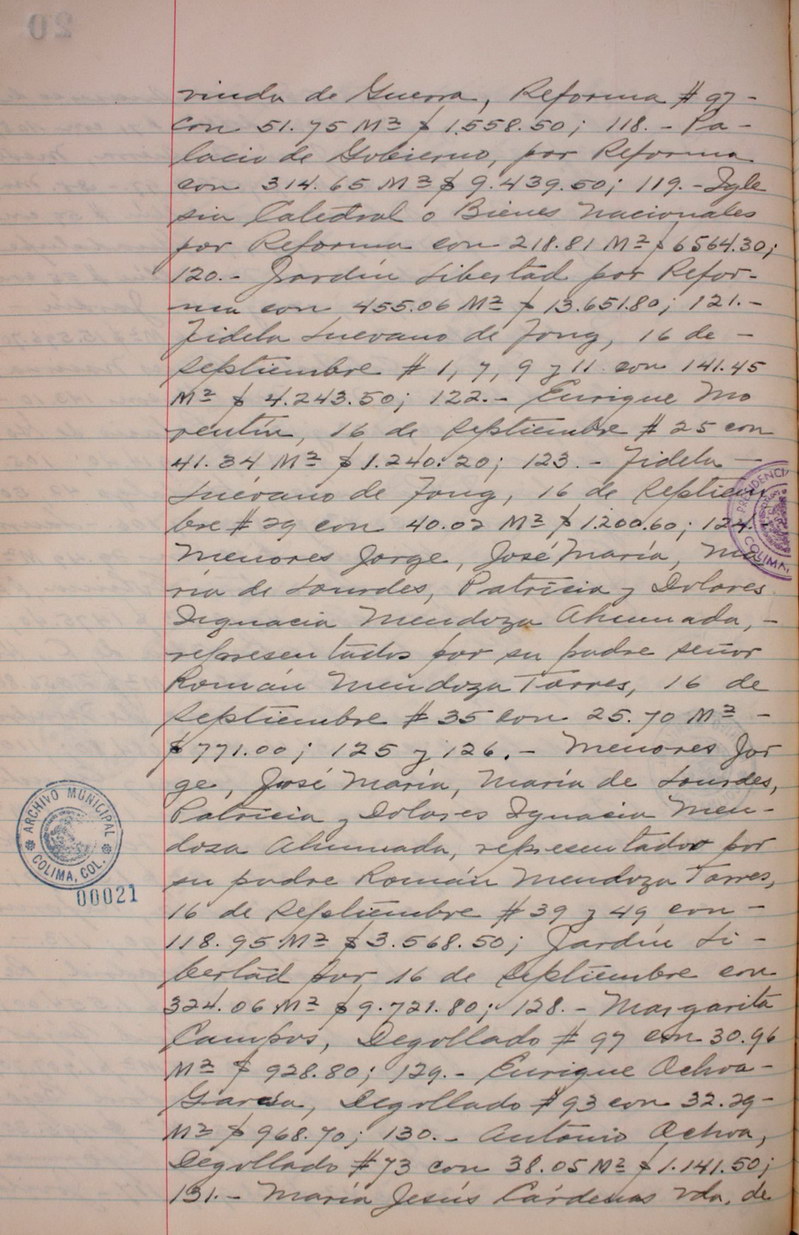 viuda de Guerra, Reforma # 97 -
con 51.75 M2 $ 1,558.50; 118.- Pa-
lacio de Gobierno, por Reforma
con 314.65 M2 $ 9.439.50; 119.- Igle
sia Catedral o Bienes Nacionales
por Reforma con 218.81 M2 $ 6564.30;
120.- Jardín Libertad por Refor-
ma con 455.06 M2 $ 13.651.80; 121.-
Fidela Luevano de Jong, 16 de -
Septiembre # 1, 7, 9 y 11 con 141.45
M2 $ 4.243.50; 122.- Enrique Mo
rentín, 16 de Septiembre # 25 con
41.34 M2 $ 1.240.20; 123.- Fidela -
Luévano de Jong, 16 de Septiem
bre # 29 con 40.02 M2 $ 1.200.60; 124.-
Menores Jorge, José María, Ma
ría de Lourdes, Patricia y Dolores
Ignacia Mendoza Ahumada, -
representados por su padre señor
Román Mendoza Torres, 16 de
Septiembre # 35 con 25.70 M2 -
$ 771.00; 125 y 126.- Menores Jor
ge, José María, María de Lourdes,
Patricia y Dolores Ignacia Men-
doza Ahumada, representados por
su padre Román Mendoza Torres,
16 de Septiembre # 39 y 49 con -
118.95 M2 $ 3.568.50; Jardín Li-
bertad por 16 de Septiembre con
324.06 M2 $ 9.721.80; 128.- Margarita
Campos, Degollado # 97 con 30.96
M2 $ 928.80; 129.- Enrique Ochoa -
Garcia, Degollado # 93 con 32.29 -
M2 $ 968.70; 130.- Antonio Ochoa,
Degollado # 73 con 38.05 M2 $ 1.141.50;
131.- María Jesús Cárdenas vda. de
PRESIDENCIA
COLIMA,
ARCHIVO MUNICIPAL
COLIMA, COL.
00021
20